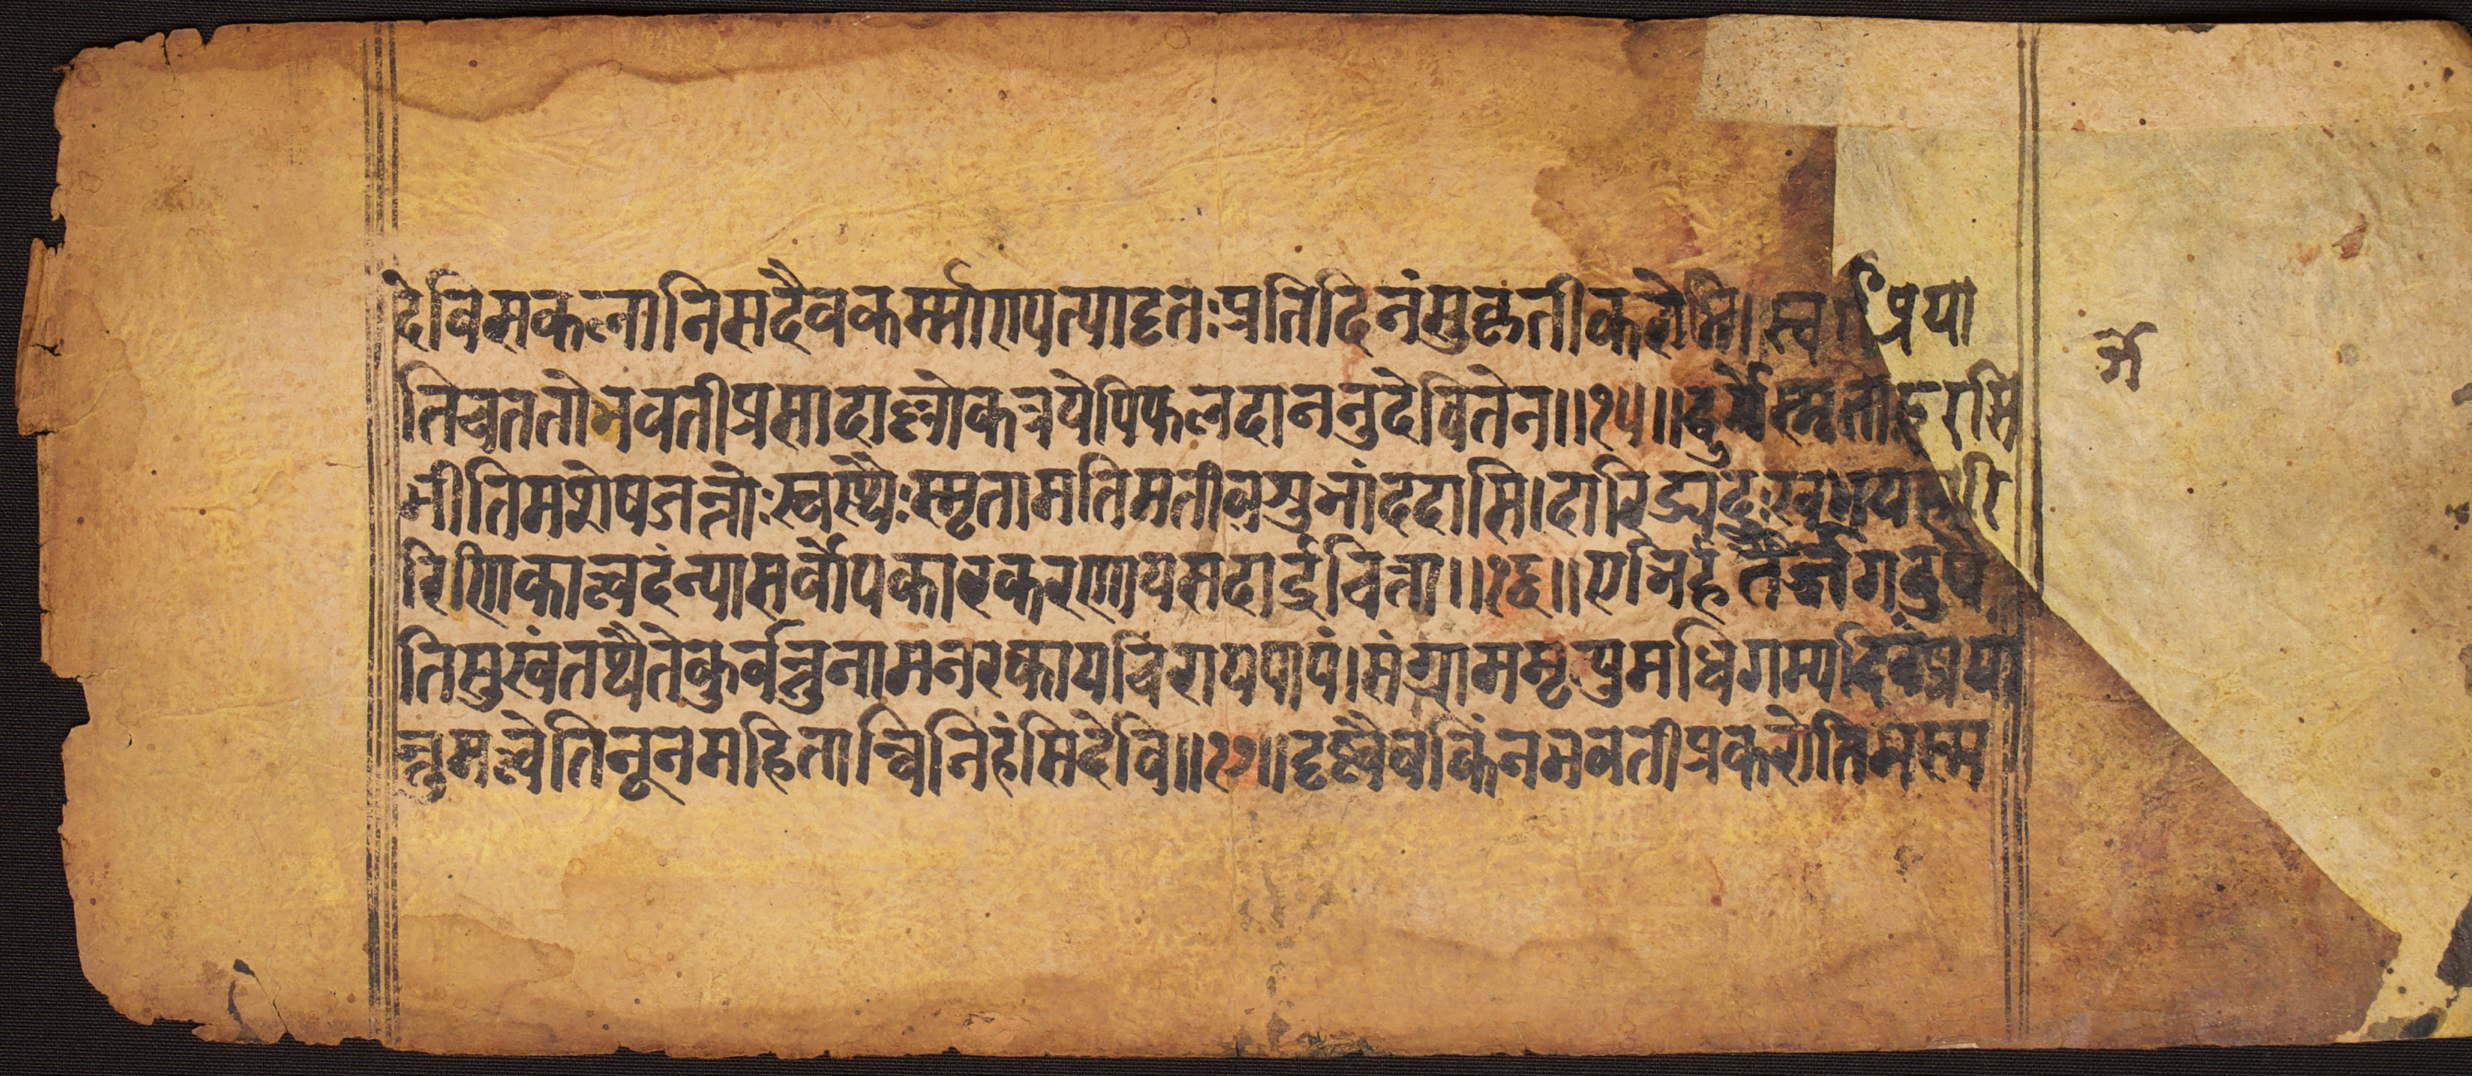 देविसकलानिसदैवकर्म्माण्यत्यादृतःप्रतिदिनंसुकृतीकरोति।स्वर्गंप्रया
तिचततोभवतीप्रसादाल्लोकत्रयेपिफलदाननुदेवितेन॥१५॥दुर्गेस्मृताहरसि
भीतिमशेषजन्तोःस्वस्थैःस्मृतामतिमतीवशुभांददासि।दारिद्र्यदुःखभय हारि
रिणिकात्वदंन्यासर्वोपकारकरणायसदार्द्रचित्ता॥१६॥एभिर्हतैर्जगदुपै
तिसुखंतथैतेकुर्वन्तुनामनरकायचिरायपापं।संग्राममृत्युमधिगम्यदिवंप्रया
न्तुमत्वेतिनूनमहितान्विनिहंसिदेवि॥१७॥दृष्ट्वैवकिंनभवतीप्रकरोतिभस्म